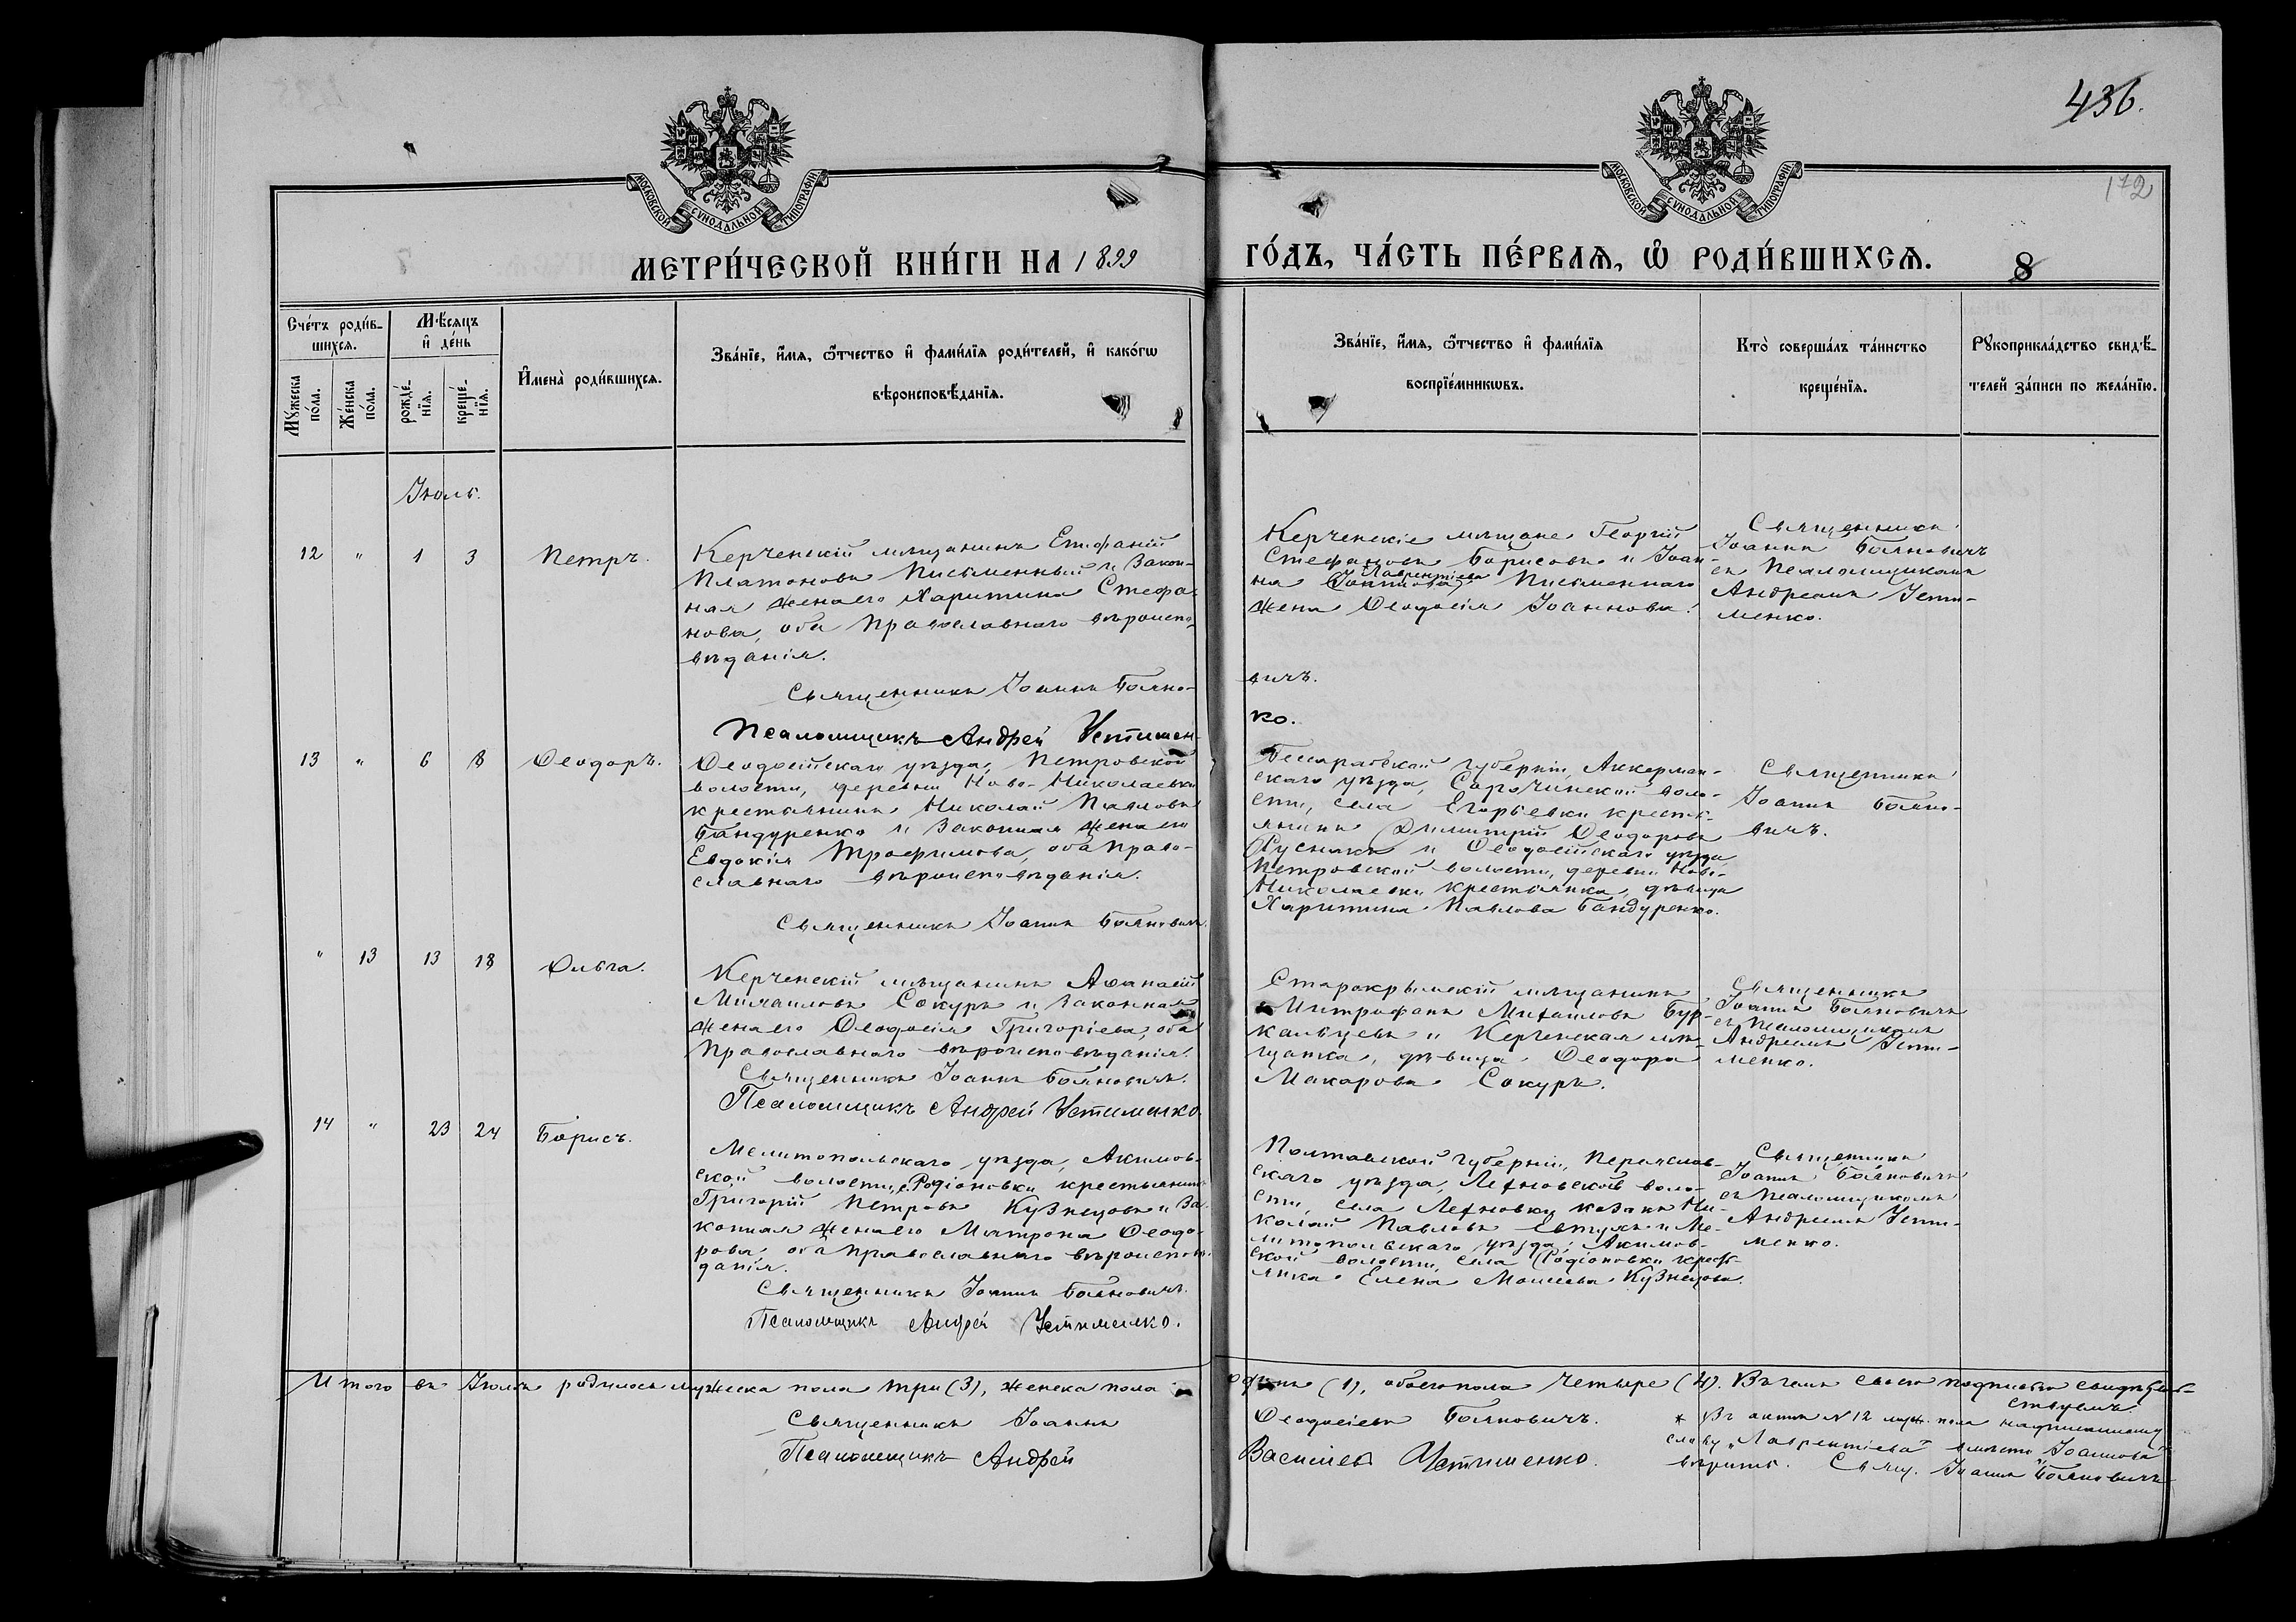 436.
172
МОСКОВСКОЙ СУНОДАЛЬНОЙ ТИПОГРАФІИ
МОСКОВСКОЙ СУНОДАЛЬНОЙ ТИПОГРАФІИ
МЕТРИ́ЧЕСКОЙ КНИ́ГИ НА 1899
ГО́ДЪ, ЧА́СТЬ ПЕ́РВАѦ, Ѡ҆ РОДИ́ВШИХСѦ. 8
Сче́тъ роди́в-
шихсѧ.
Мꙋ́жеска
по́ла.
Же́нска
по́ла.
Мѣ́сѧцъ
и҆ де́нь
рожде́-
нїѧ.
креще́-
нїѧ.
И҆мена̀ роди́вшихсѧ.
Зва́нїе, и҆́мѧ, ѻ҆́тчество и҆ фами́лїѧ роди́телей, и҆ како́гѡ
вѣроисповѣ́данїѧ.
Зва́нїе, и҆́мѧ, ѻ҆́тчество и҆ фами́лїѧ
воспрїе́мникѡвъ.
Кто̀ соверша́лъ та́инство
креще́нїѧ.
Рꙋкоприкла́дство свидѣ́-
телей за́писи по жела́нїю.
Іюль.
12 " 1 3 Петръ.
Керченскій мѣщанинъ Епифаній
Платоновъ Письменный и закон-
ная жена его Харитина Стефа-
нова, оба православнаго вѣроиспо-
вѣданія.
Священникъ Іоаннъ Бояно-
вичъ.
Псаломщикъ Андрей Устимен-
ко.
Керченскіе мѣщане Георгій
Стефановъ Борисовъ и Іоан-
на Лаврентіева Письменнаго
жена Ѳеодосія Іоаннова.
Священникъ
Іоаннъ Бояновичъ
съ псаломщикомъ
Андреемъ Усти-
менко.
13 " 6 8 Ѳеодоръ.
Ѳеодосійскаго уѣзда, Петровской
волости, деревни Ново-Николаевки
крестьянинъ Николай Павловъ
Бандуренко и законная жена его
Евдокія Трофимова, оба право-
славнаго вѣроисповѣданія.
Священникъ Іоаннъ Бояновичъ.
Бессарабской губерніи, Аккерман-
скаго уѣзда, волости,
села Егорьевки кресть-
янинъ Димитрій Ѳеодоровъ
Руснакъ и Ѳеодосійскаго уѣзда
Петровской волости, деревни Ново-
Николаевки крестьянка, дѣвица
Харитина Павлова Бандуренко.
Священникъ
Іоаннъ Бояно-
вичъ.
" 13 13 18 Ольга.
Керченскій мѣщанинъ Аѳанасій
Михаиловъ Сокуръ и законная
жена его Ѳеодосія Григоріева, оба
православнаго вѣроисповѣданія.
Священникъ Іоаннъ Бояновичъ.
Псаломщикъ Андрей Устименко.
Старокрымскій мѣщанинъ
Митрофанъ Михаиловъ Бур-
кальцевъ и Керченская мѣ-
щанка, дѣвица Ѳеодора
Макарова Сокуръ.
Священникъ
Іоаннъ Бояновичъ
съ псаломщикомъ
Андреемъ Усти-
менко.
14 " 23 24 Борисъ.
Мелитопольскаго уѣзда, Акимов-
ской волости, с. Родіоновки крестьянинъ
Григорій Петровъ Кузнецовъ и за-
конная жена его Матрона Ѳеодо-
рова, оба православнаго вѣроисповѣ-
данія.
Священникъ Іоаннъ Бояновичъ.
Псаломщикъ Андрей Устименко.
Полтавской губерніи, Переяслав-
скаго уѣзда, воло-
сти, села казакъ Ни-
колай Павловъ Евтухъ и Ме-
литопольскаго уѣзда, Акимов-
ской волости, села Родіоновки кресть-
янка Елена Моисеева Кузнецова.
Священникъ
Іоаннъ Бояновичъ
съ псаломщикомъ
Андреемъ Усти-
менко.
Итого въ Іюлѣ родилось мужеска пола три (3), женска пола одинъ (1), обоего пола четыре (4). Въ чемъ своею подписью свидѣтель-
ствуемъ
Священникъ Іоаннъ Ѳеодосіевъ Бояновичъ.
Псаломщикъ Андрей Васильевъ Устименко.
* Въ актѣ № 12 муж. пола надписанному
слову „Лаврентіева" вмѣсто „Іоаннова"
вѣрить. Свящ. Іоаннъ Бояновичъ